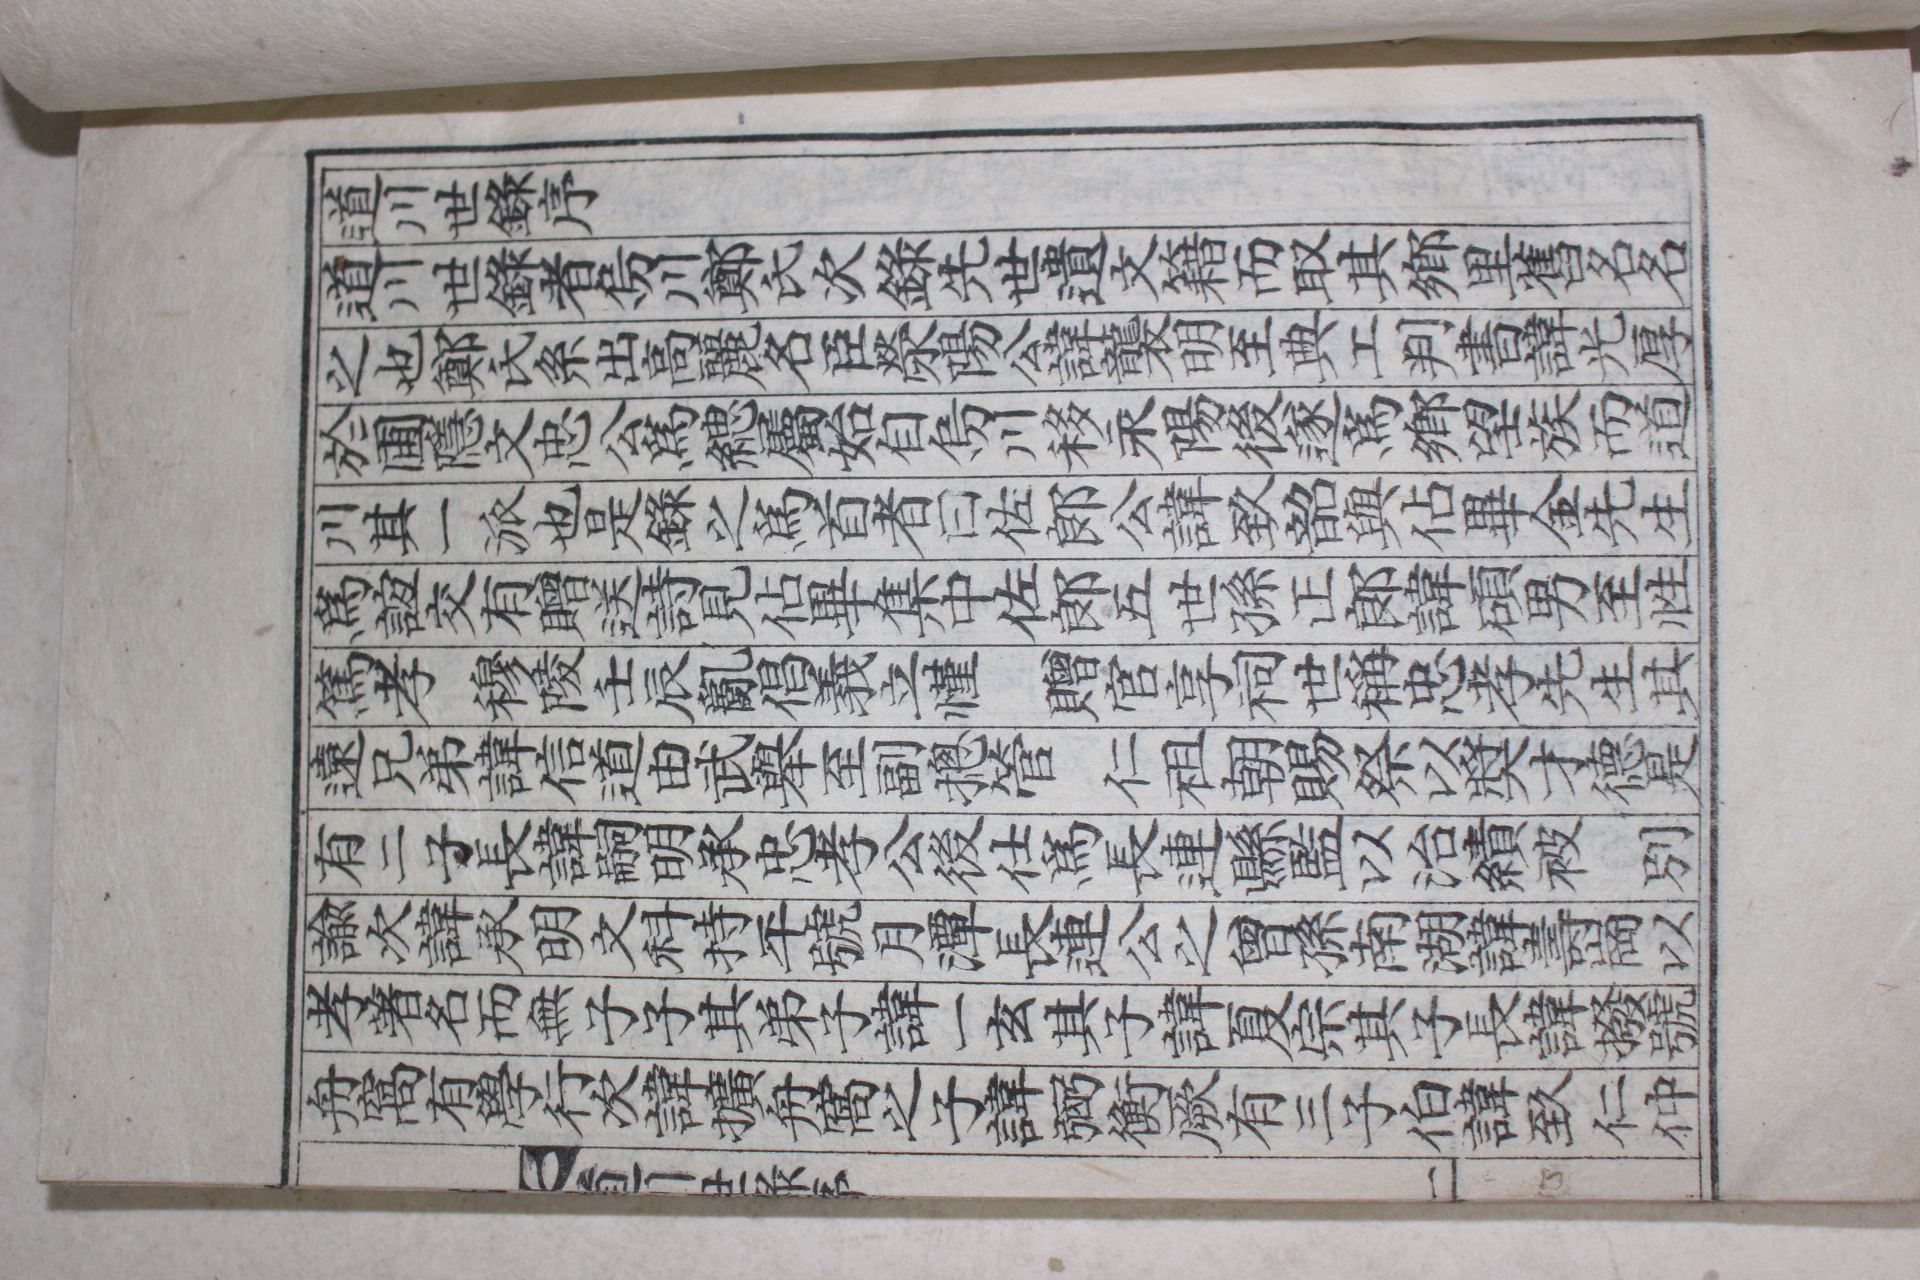 道川世錄序
道川世錄者烏川鄭氏次錄先世遺文籍而取其鄉里舊名名
之也鄭氏系出高麗名臣滎陽公諱襲明至典工判書諱光厚
於圃隱文忠公爲緦屬始自烏川移永陽後遂爲鄉望族而道
川其一派也是錄之爲首者曰佐郎公諱致韶與佔畢金先生
爲誼交有贈送詩見佔畢集中佐郎五世孫正郎諱碩男至性
篤孝 穆陵壬辰亂倡義立慬 贈官享祠世稱忠孝先生其
遠兄弟諱信道由武擧至副摠管 仁祖朝賜祭以奬才德是
有二子長諱嗣明承忠孝公後仕爲長連縣監以治績被 別
諭次諱承明文科持平號月潭長連公之曾孫南湖諱壽崗以
孝著名而無子子其弟子諱一玄其子諱夏宗其子長諱撥號
舟窩有學行次諱擴舟窩之子諱弼衡厥有三子伯諱致仁仲
道川世錄序 一